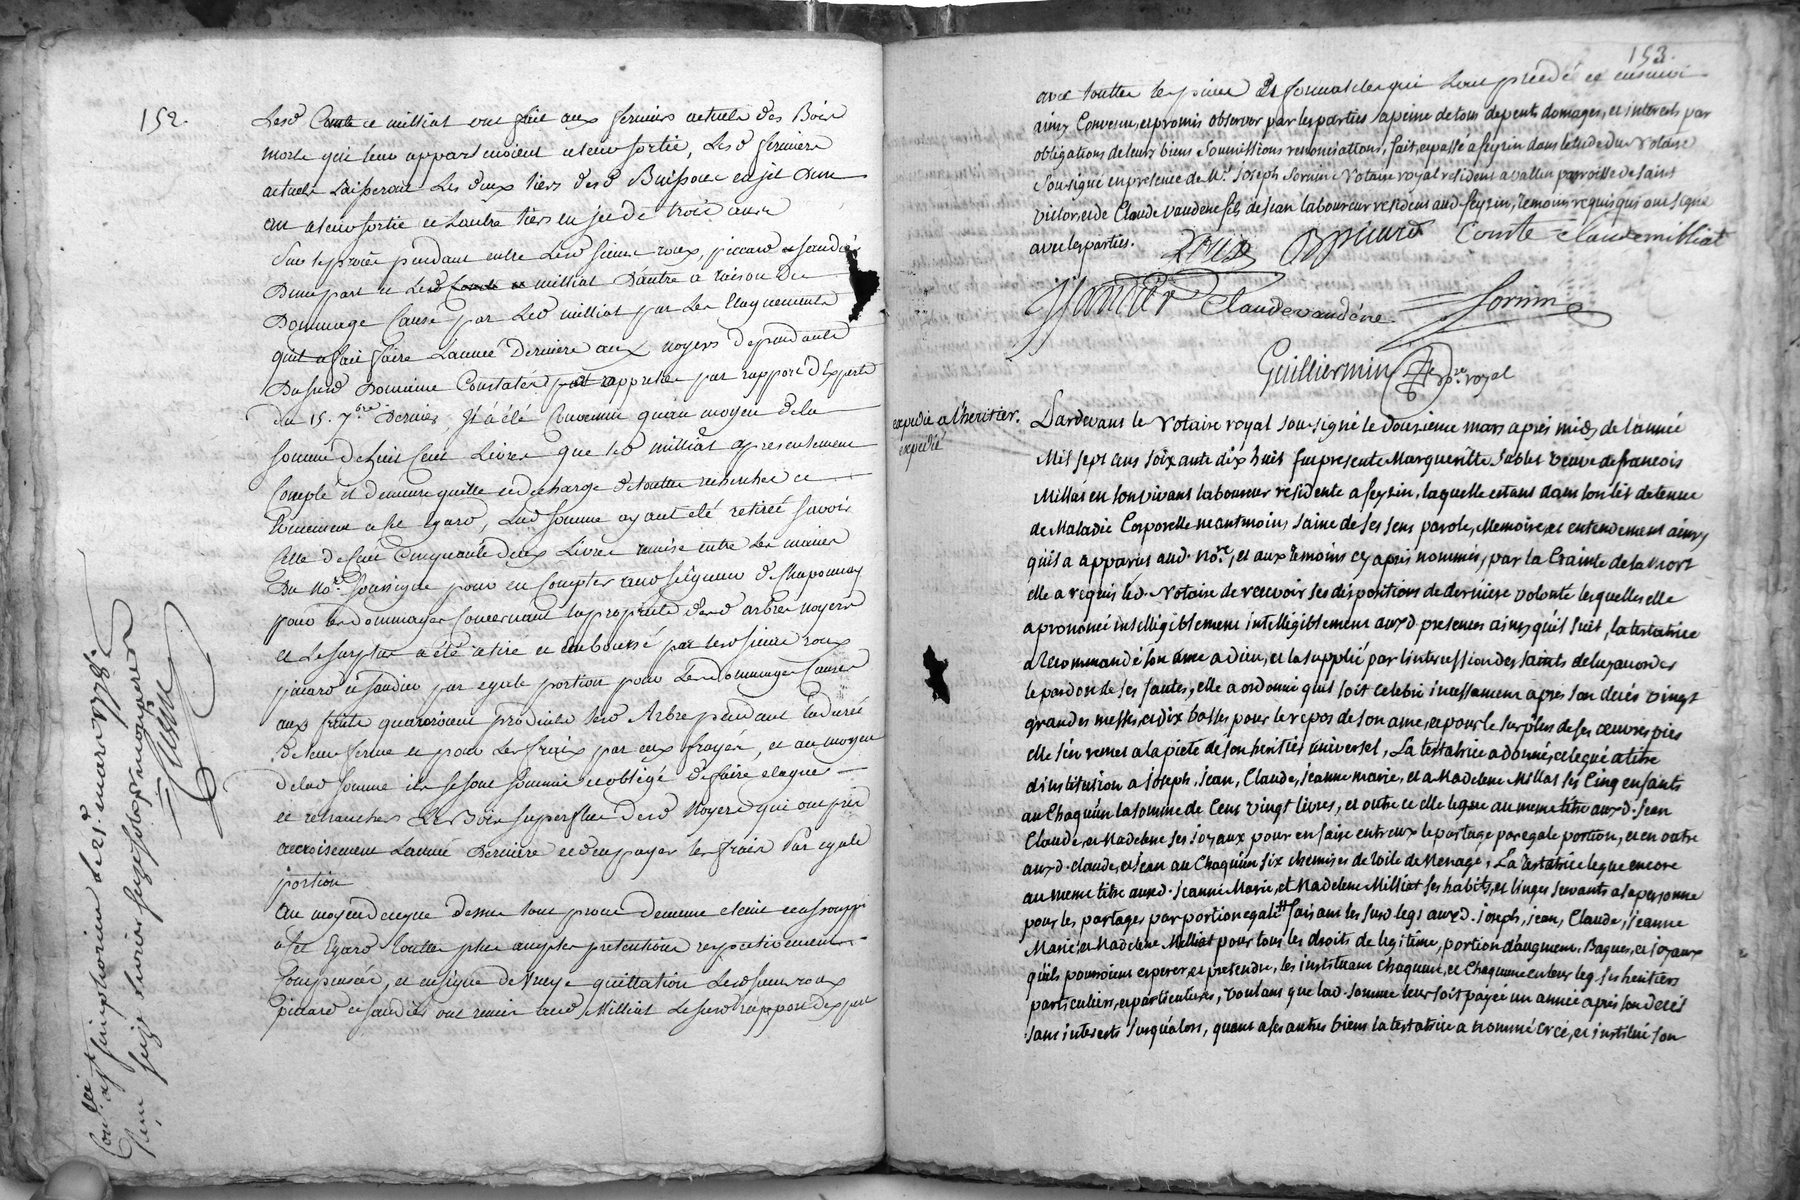 152.
Lesd Comte et milliat ont fait aux fermiers actuels des Bois
morts qui leur appartenoient a leur sortie, Lesd fermiers
actuels Laisseront Les deux tiers desd Buissons en jet Dune
an a leur sortie et Lautre tiers en jet de trois ans
Sur le procès pendant entre Lesd sieurs roux, piccard et jandié
Dune part et Led Comte et milliat Dautre a raison du
Dommage Causé par Led milliat par Les Elaguements
quil a fait faire Lannée Derniere aux noyers dependants
Dusurd Domaine Constatés par rapport dExperts
du 15. 7bre Dernier, Il a été Convenu quau moyen de la
somme de huit Cent Livres que led milliat a presentement
Compté il demeure quitte et decharge de toutte recherche et
a cet Egard, Lad somme ayant été retirée savoir
Celle de Cent Cinquante deux Livres remise entre Les mains
Du Nore soussigné pour en Compter aud seigneur de Chaponnay
pour les dommages Concernant la proprieté desd arbres noyers
et Le surplus a été retiré et Emboursé par lesd sieurs roux
picard et jandier par egale portion pour Les dommages Causés
aux fruits quauroient produits lesd Arbres pendant La durée
de leur ferme et pour Les fraix par eux frayés, et au moyen
de lad somme ils se sont soumis et obligé de faire elaguer
et retrancher Le Bois superflue desd Noyers qui ont pris
accroisement Lannée Derniere et den payer les frais Par egale
portion
Au moyen de ce que dessus tout procès demeure eteint et assoupi
a cet Egard toutte plus amples pretentions respectivement
Compensées, et en signe de vraye quittation Lesd sieurs roux
picard et jandiés ont remis aud Milliat Le surd rapport dexperts
Conlé a st simphorien le 21. mars 1778.
seize livres seize sols six
153.
avec toutter les peines Et formalites qui sont préedé et ensuivi
ainsy Convenu, et promis observer par les parties a peine de tous depents domages, et interets par
obligations de leurs biens soumissions renonciations, fait, et passé à feyzin dans letude du Notaire
sousigné en presence de Mr. Joseph Sornin Notaire royal resident a vallin parroisse de saint
victor, et de Claude vaudene fils de jean laboureur resident aud feyzin, temoins requis qui ont signé
avec les parties. Roux piccard Comte Claude milliat
Jandier Claude vaudéne Sornin
Guilliermin Nre. royal
expedie a lheritier.
expedié
Pardevant le Notaire royal sousigné le douzieme mars après midy de lannée
Mil sept cens soixante dix huit fut presente Margueritte Sablet veuve de francois
Millas en son vivant laboureur residente a feyzin, laquelle etant dans son lit detenue
de Maladie Corporelle neantmoins saine de ses sens parole, Memoire, et entendement ainsy
quil a apparus aud. Nore, et aux temoins cy après nommés, par la Crainte de la Mort
elle a requis led. Notaire de recevoir ses dispositions de derniere volonté lesquelles elle
a prononcé intelligiblement intelligiblement auxd. presences ainsy quil suit, la testatrice
a recommandé son ame a dieu, et la supplié par lintercession des saints de luy accorder
le pardon de ses fautes, elle a ordonné quil soit celebré incessament après son decès vingt
grandes messes, et dix basses pour le repos de son ame, et pour le surplus de ses œuvres pies
elle sen remet a la pieté de son heritier universel, La testatrice a donné, et legué a titre
dinstitution a joseph, jean, Claude, jeanne marie, et a Madelene Millas ses Cinq enfants
au Chaqu'un la somme de Cent vingt livres, et outre ce elle legue au meme titre auxd. jean
Claude, et Madelene ses joyaux pour en faire entreux le partage par egale portion, et en outre
auxd. claude, et jean au Chaqu'un six chemises de toile de Menage, La testatrice legue encore
au meme titre auxd. jeanne Marie, et Madelene Milliat ses habits, et linges servants a sa personne
pour les partager par portion egale # faisant les susd legs auxd. joseph, jean, Claude, jeanne
Marie, et Madelene Milliat pour tous les droits de legitime, portion daugment, Bagues, et joyaux
quils pourroient esperer, et pretendre, les instituant Chaqu'un, et Chaqu'une en leur leg ses heritiers
particuliers, et particulieres, voulant que lad. somme leur soit payée un année après son decès
sans interets jusqualors, quant a ses autres biens la testatrice a nommé Créé, et institué son